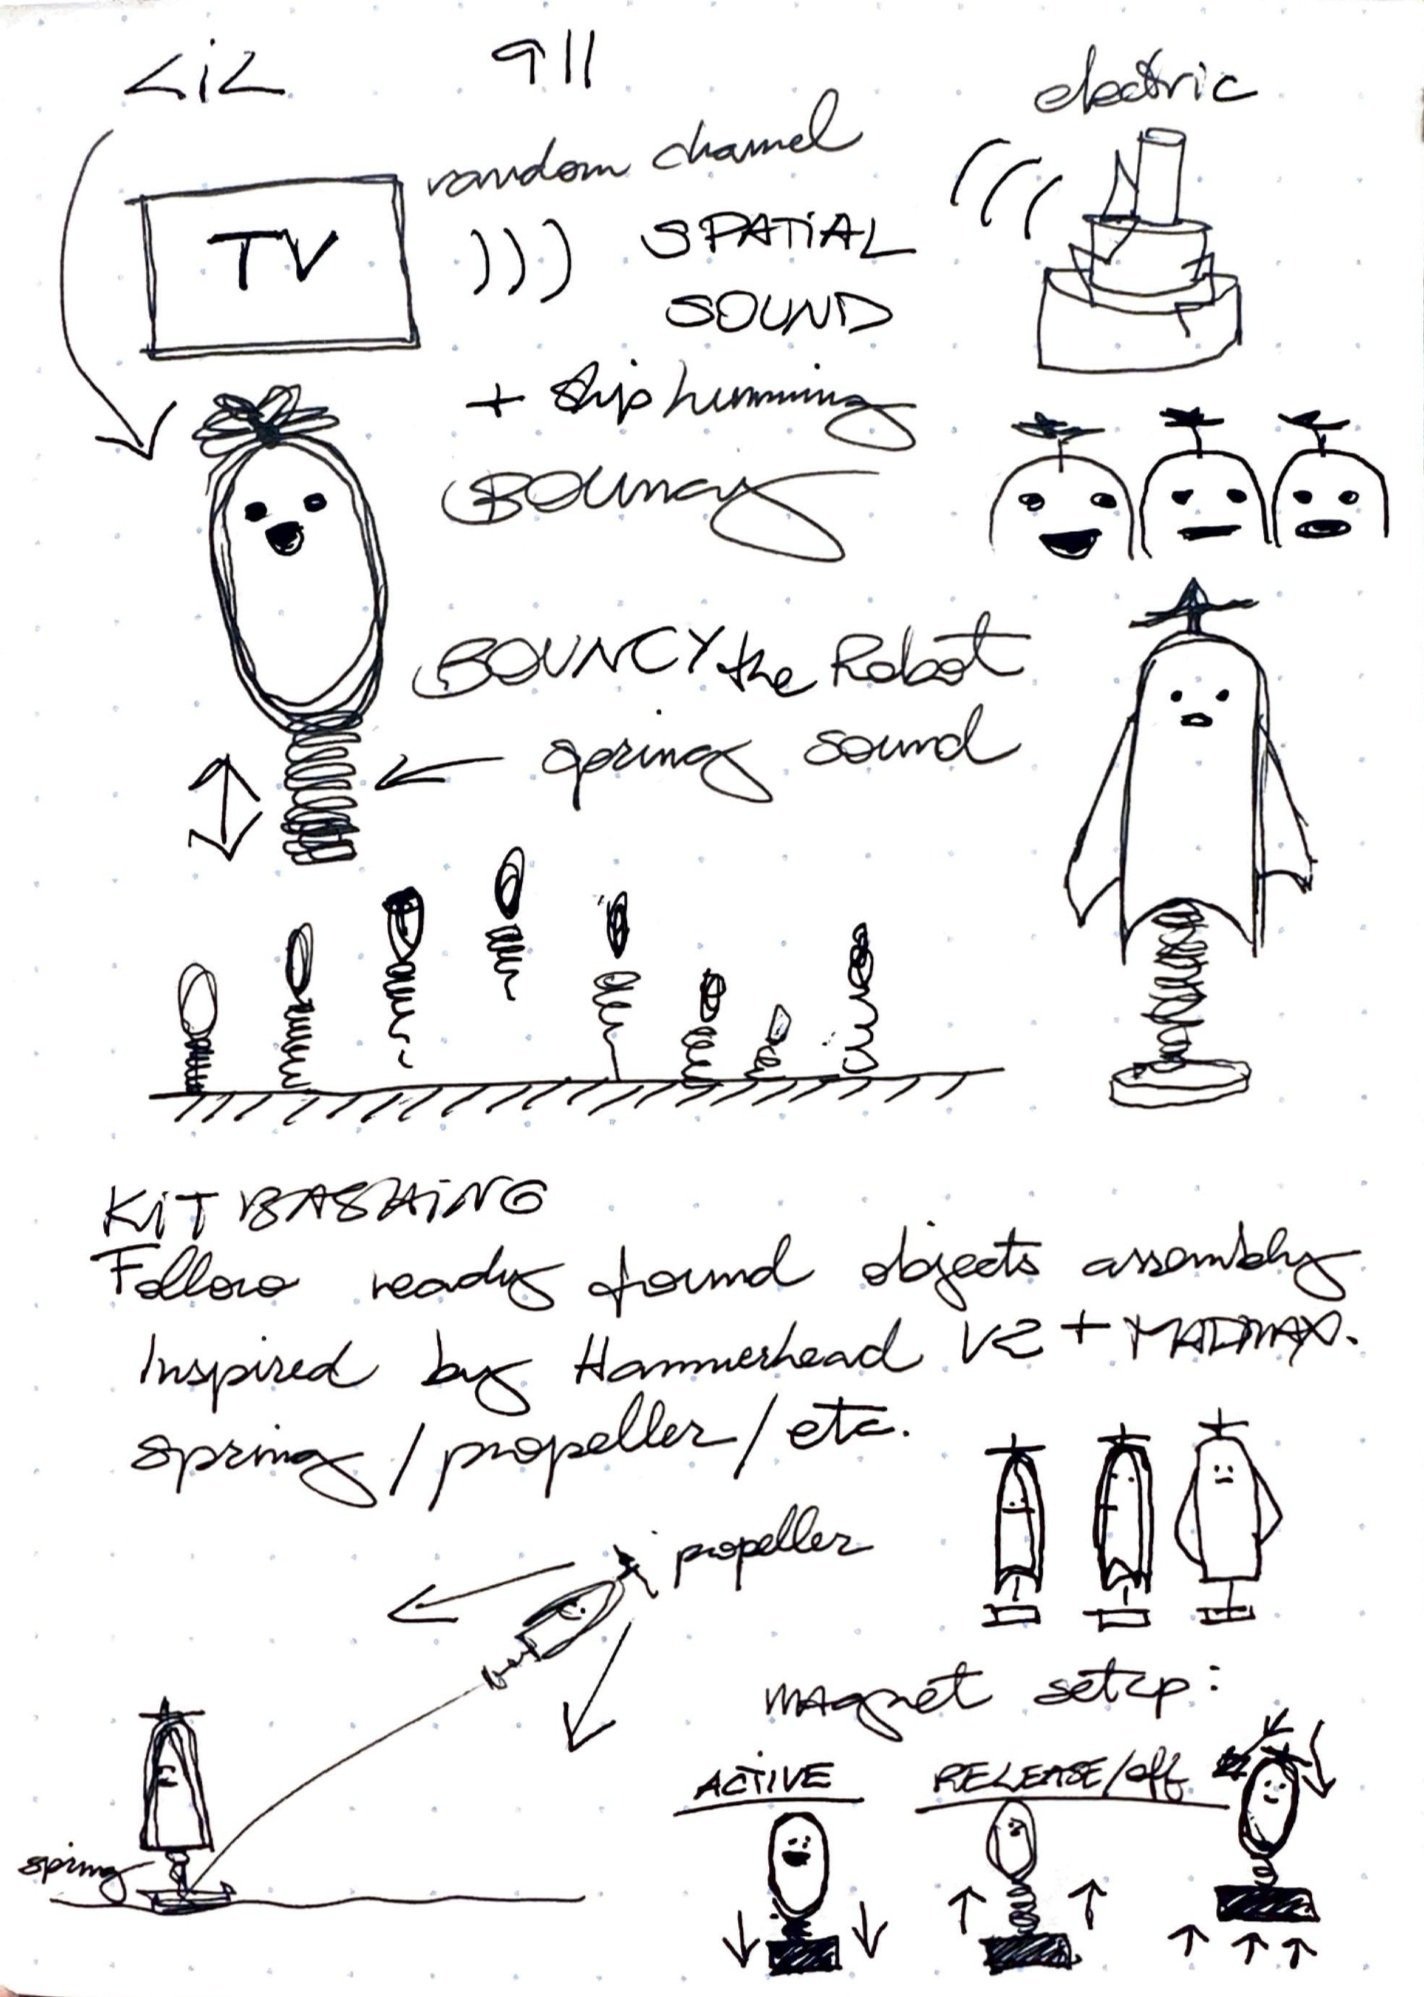 LiL 911
electric
random channel
TV
SPATiAL
SOUND
+ ship humming
BOUNCY
BOUNCY the Robot
spring sound
KiT BASHiNG
Follow ready found objects assembly
Inspired by Hammerhead V2 + MADMAX.
spring / propeller / etc.
propeller
magnet setup:
ACTIVE
RELEASE/off
spring